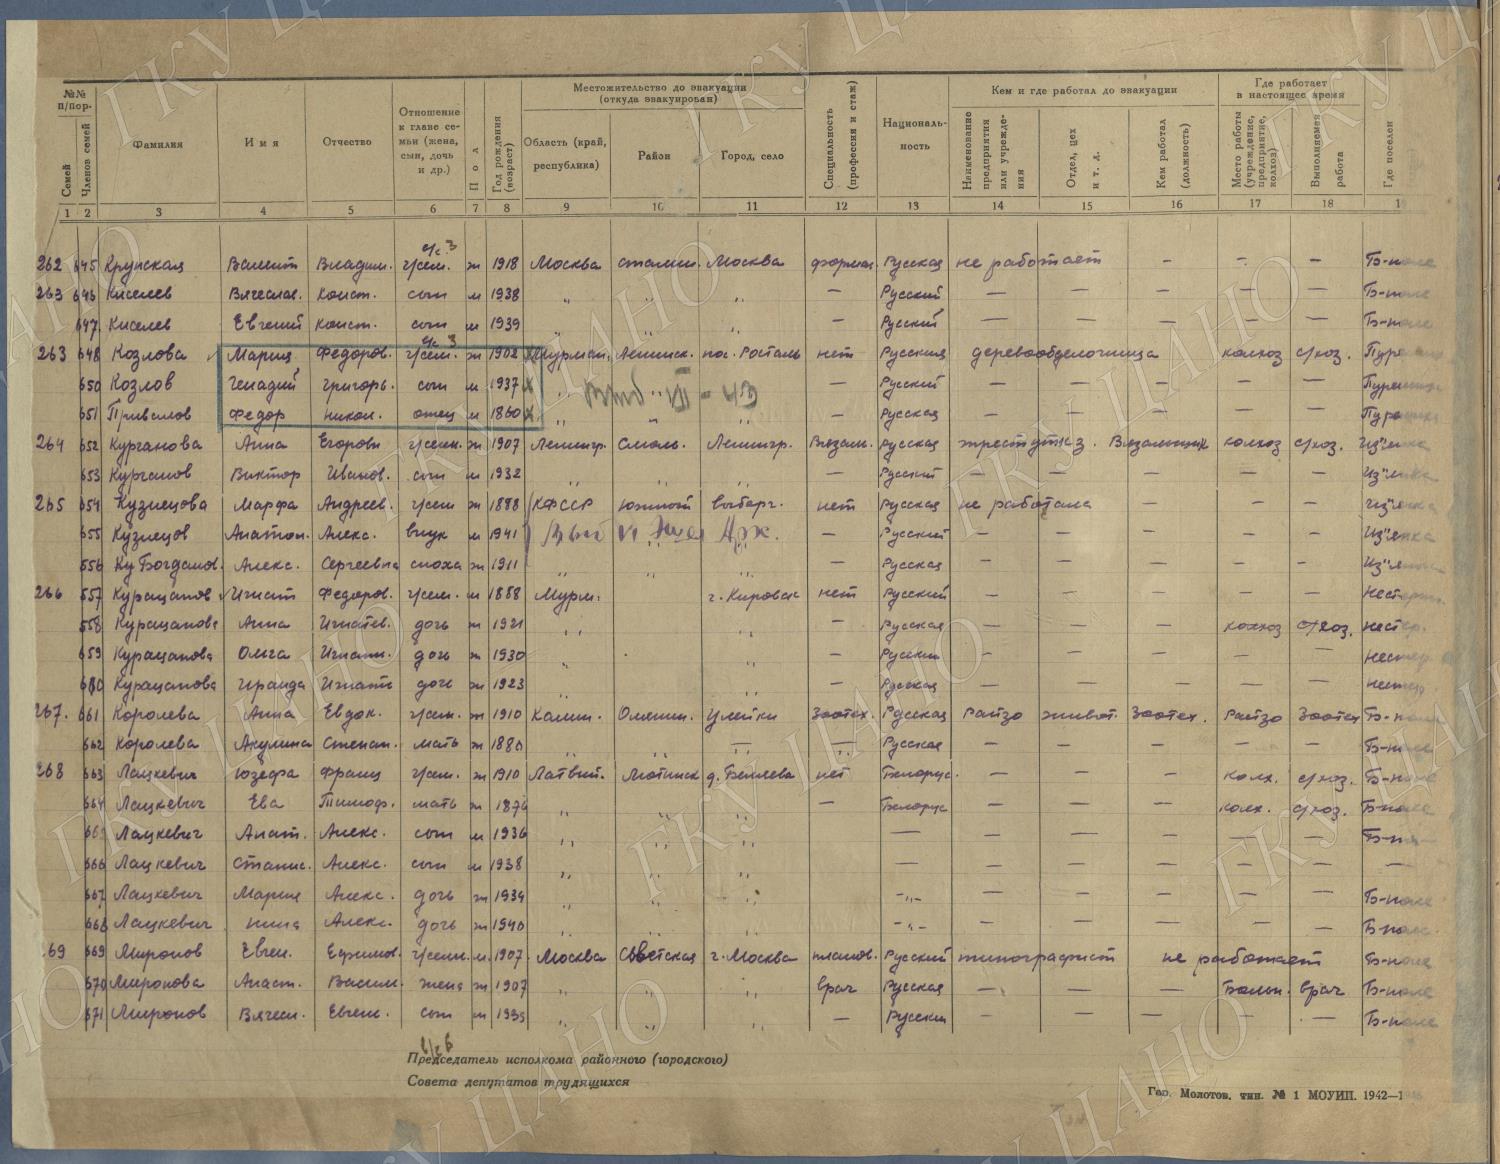 №№ п/пор.
Местожительство до эвакуации (откуда эвакуирован)
Кем и где работал до эвакуации
Где работает в настоящее время
Семей Членов семей Фамилия Имя Отчество Отношение к главе семьи (жена, сын, дочь и др.) Пол Год рождения (возраст) Область (край, республика) Район Город, село Специальность (профессия и стаж) Национальность Наименование предприятия или учреждения Отдел, цех и т. д. Кем работал (должность) Место работы (учреждение, предприятие, колхоз) Выполняемая работа Где поселен
1 2 3 4 5 6 7 8 9 10 11 12 13 14 15 16 17 18 1
262 645 Крупская Валент Владим. г/сем. ж 1918 Москва сталин. Москва Русская не работает — — — Б-поле
263 646 Киселев Вячеслав. Конст. сын м 1938 „ „ „ — Русский — — — — — Б-поле
647 Киселев Евгений Конст. сын м 1939 „ „ „ — Русский — — — — — Б-поле
263 648 Козлова Мария Федоров. г/сем. ж 1902 Мурман. Ленинск. пос. Росталь нет Русская деревообделочница колхоз с/хоз.
650 Козлов Генадий Григорь. сын м 1937 х „ — Русский — — — — —
651 Привалов Федор Никол. отец м 1860 х „ „ „ — Русская — — — — —
264 652 Курганова Анна Егоровн г/семн. ж 1907 Ленингр. Смоль. Ленингр. Вязаль. Русская Вязальщик колхоз с/хоз.
653 Курганов Виктор Иванов. сын м 1932 „ „ „ — Русский — — — — —
265 654 Кузнецова Марфа Андреев. г/сем ж 1888 КФССР южный выборг. нет Русская не работала — — —
655 Кузнецов Анатол. Алекс. внук м 1941 — Русский — — — — —
556 Ку Богданов. Алекс. Сергеевна сноха ж 1911 „ „ „ — Русская — — — — —
266 557 Курацанов Игнат Федоров. г/сем. м 1888 Мурм. г. Кировск нет Русский — — — — —
558 Курацанова Анна Игнатьев. дочь ж 1921 „ „ Русская — — — колхоз с/хоз.
659 Курацанова Ольга Игнатн. дочь ж 1930 „ „ Русский — — — — —
660 Курацанова Ираида Игнатн дочь ж 1923 „ „ Русская — — — — —
267. 661 Королева Анна Евдок. г/сем. ж 1910 Калин. Оленин. Улейки Зоотех. Русская Райзо живот. Зоотех. Райзо Зоотех Б-поле
662 Королева Акулина Степан. мать ж 1880 „ „ — — Русская — — — — — Б-поле
268 663 Лацкевич Юзефа Франц г/сем. ж 1910 Латвий. д. Беляева нет Белорус. — — — колх. с/хоз. Б-поле
664 Лацкевич Ева Тимоф. мать ж „ „ „ — Белорус — — — колх. с/хоз. Б-поле
665 Лацкевич Анат. Алекс. сын м 1936 „ „ „ — — — — — —
666 Лацкевич Станис. Алекс. сын м 1938 „ „ „ — — — — — — —
667 Лацкевич Мария Алекс. дочь ж 1934 „ „ „ -„- — — — — — Б-поле
668 Лацкевич Нина Алекс. дочь ж 1940 „ „ „ -„- — — — — — Б-поле
269 669 Миронов Евген. Ефимов. г/семн. м. 1907 Москва Советская г. Москва Русский типографист не работает Б-поле
670 Миронова Анаст. Васил. жена ж 1907 „ „ „ врач Русская — — — Больн. врач Б-поле
671 Миронов Вячесл. Евген. сын м 1935 „ „ „ — Русский — — — — — Б-поле
Председатель исполкома районного (городского)
Совета депутатов трудящихся
Гор. Молотов, тип. № 1 МОУИП. 1942—
ГКУ ЦАНО